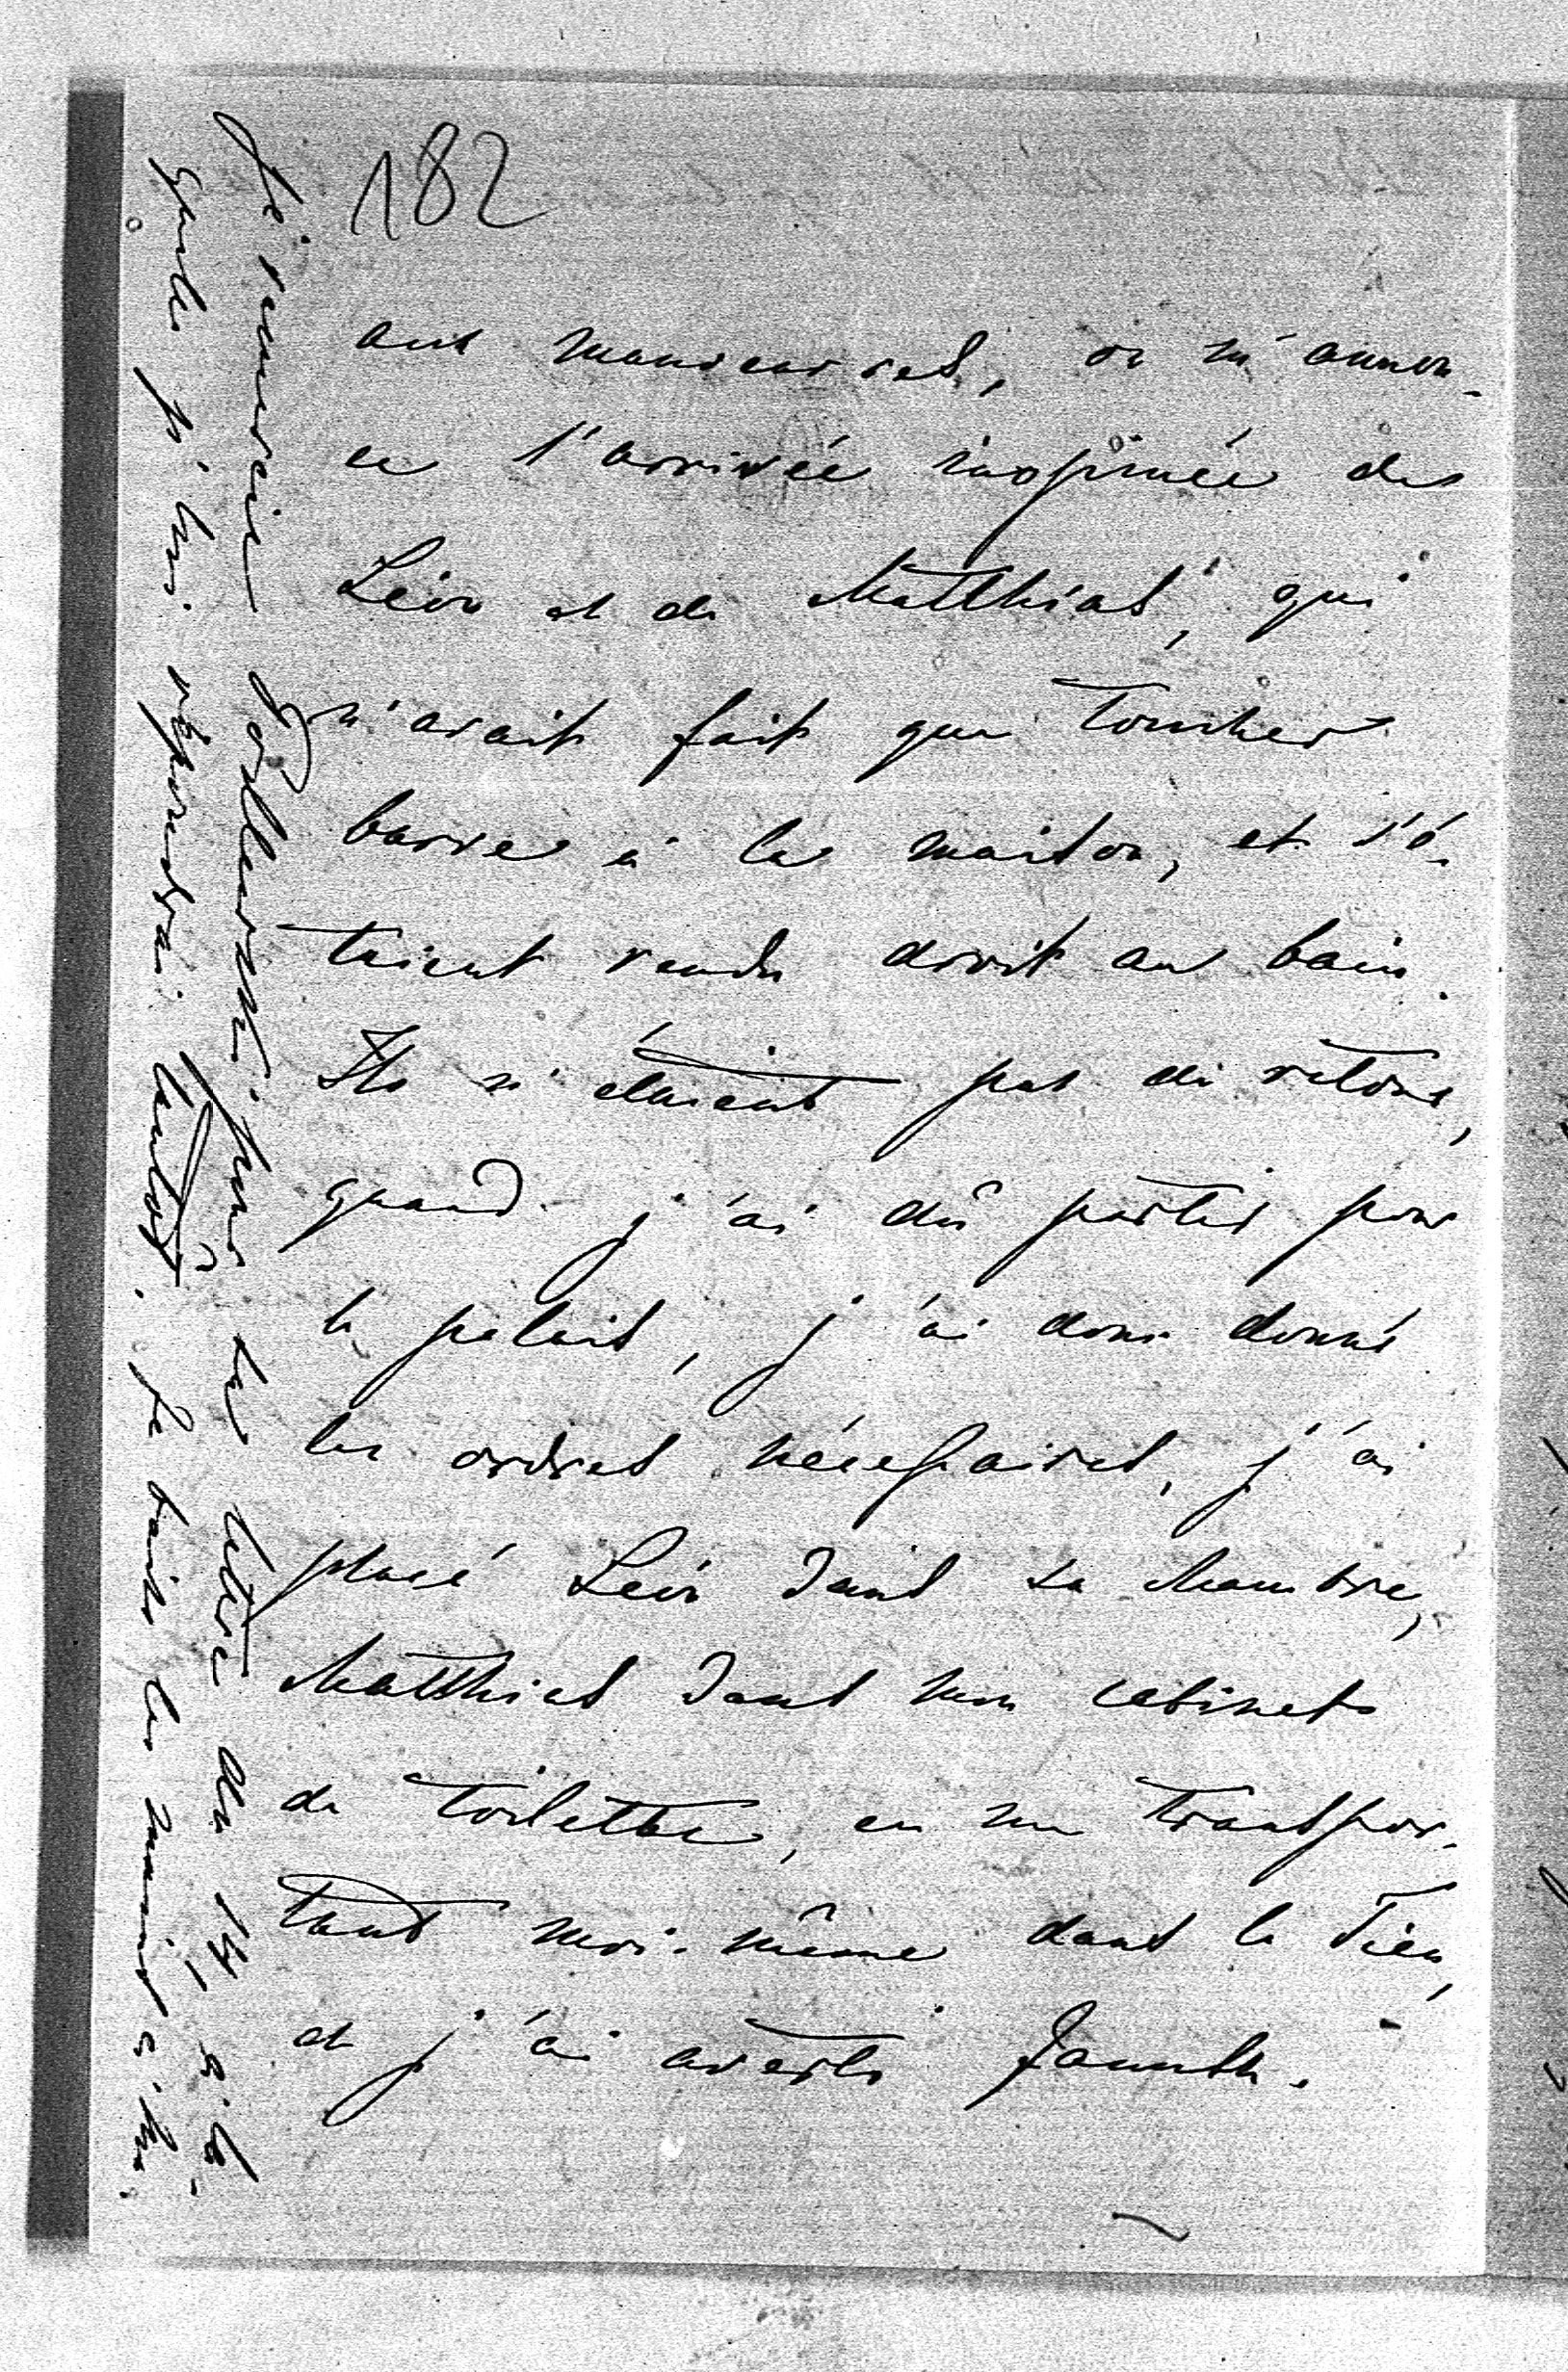 182
aux manœuvres, on m'annon-
ce l'arrivée inopinée de
Léon et de Matthias, qui
n'avait fait que toucher
barre à la maison, et s'é-
taient rendu droit au bain.
Ils n'étaient pas de retour,
quand j'ai dû partir pour
le palais, j'ai donc donné
les ordres nécessaires, j'ai
placé Léon dans sa chambre,
Matthias dans mon cabinet
de toilette, en me transpor-
tant moi-même dans le tien,
et j'ai averti
Je remercie pour sa lettre du 14, à la-
quelle je lui répondrai tantôt. Je baise les mains à